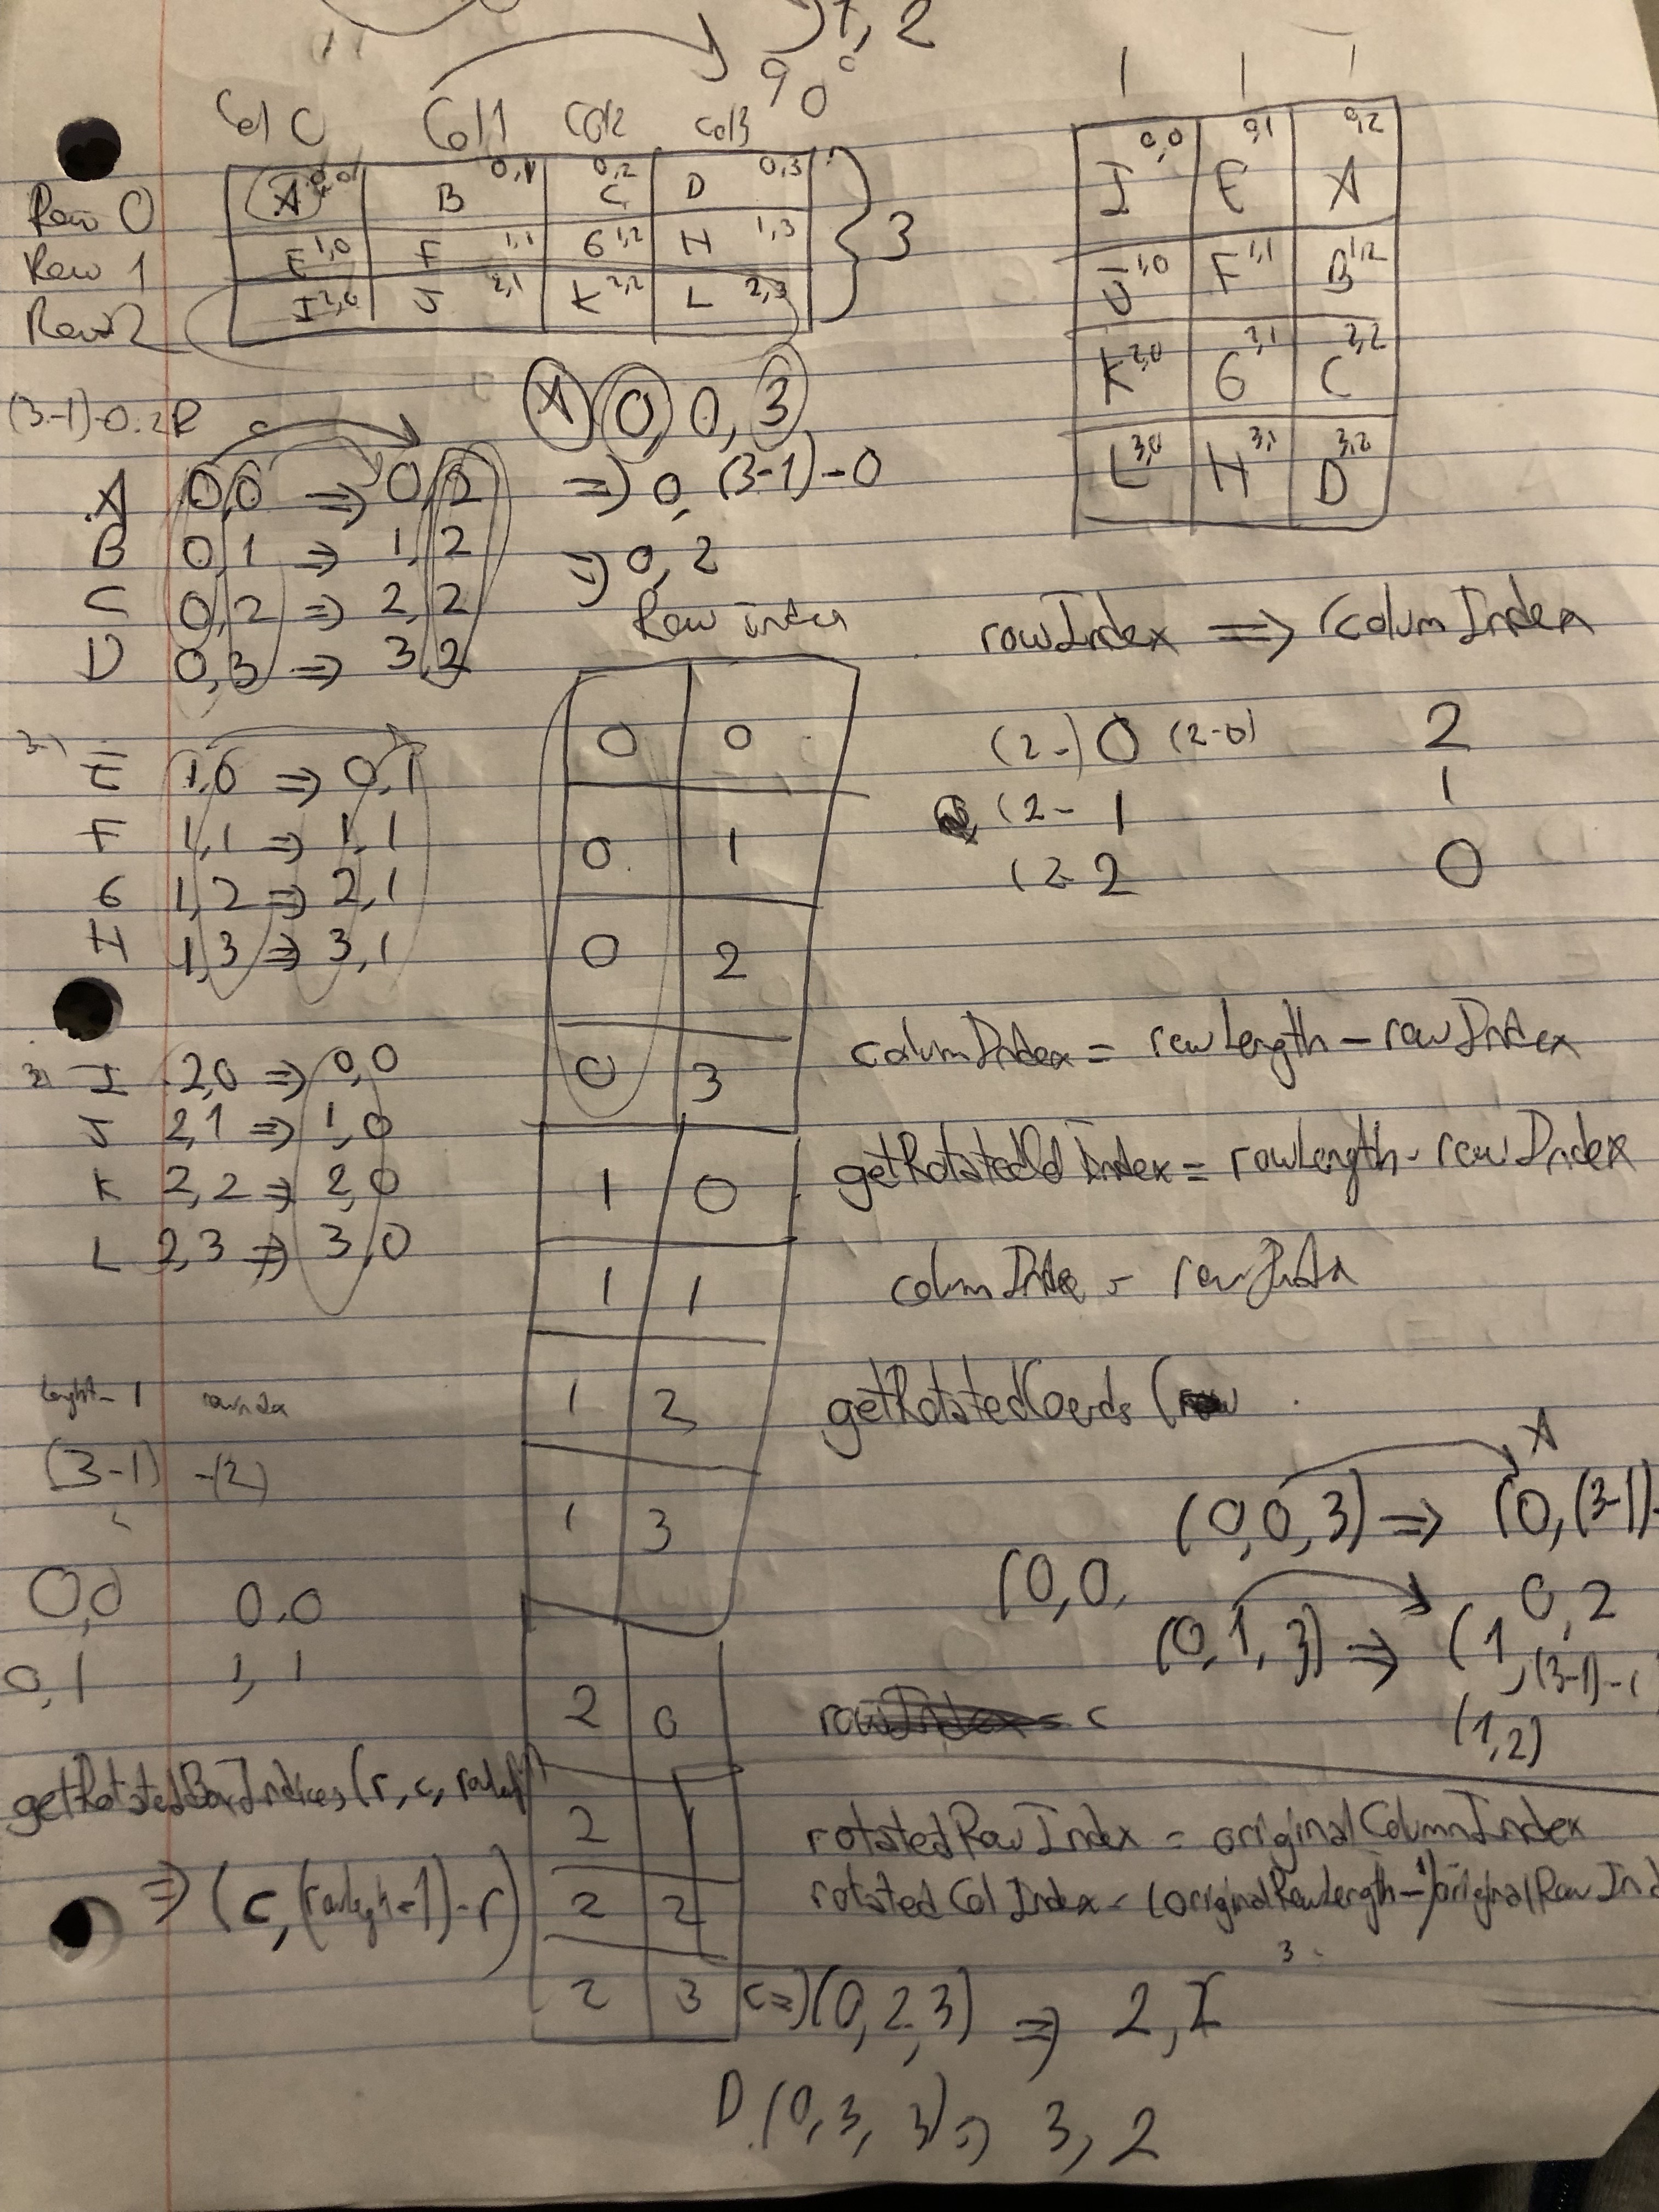 1, 2
90°
Col 0 Col1 Col2 Col3
Row 0 A 0,0 B 0,1 C 0,2 D 0,3
Row 1 E 1,0 F 1,1 G 1,2 H 1,3
Row 2 I 2,0 J 2,1 K 2,2 L 2,3
3
I 0,0 E 0,1 A 0,2
J 1,0 F 1,1 B 1,2
K 2,0 G 2,1 C 2,2
L 3,0 H 3,1 D 3,2
A 0, 0, 3
(3-1)-0
A 0,0 => 0,2 => 0, (3-1)-0
B 0,1 => 1,2 => 0, 2
C 0,2 => 2,2
D 0,3 => 3,2
E 1,0 => 0,1
F 1,1 => 1,1
G 1,2 => 2,1
H 1,3 => 3,1
I 2,0 => 0,0
J 2,1 => 1,0
K 2,2 => 2,0
L 2,3 => 3,0
Row index
0 0
0 1
0 2
0 3
1 0
1 1
1 2
1 3
2 0
2 1
2 2
2 3
rowIndex => columIndex
(2-) 0 (2-0) 2
(2- 1 1
(2- 2 0
columIndex = rowLength - rowIndex
getRotatedColIndex = rowLength - rowIndex
columIndex = rowIndex
getRotatedCoords (row
A
(0,0,3) => (0,(3-1)-
(0,0, 0,2
(0,1,3) => (1,(3-1)-
(1,2)
rowIndex = c
lenght-1 rowIndex
(3-1) -(2)
0,0 0,0
0,1 1,1
getRotatedBoxIndices(r, c, rowLength
=> (c, (rowLength-1)-r)
rotatedRowIndex = originalColumnIndex
rotatedColIndex = (originalRowLength-1)originalRowInd
3
C=>(0,2,3) => 2,2
D (0,3,3) => 3,2